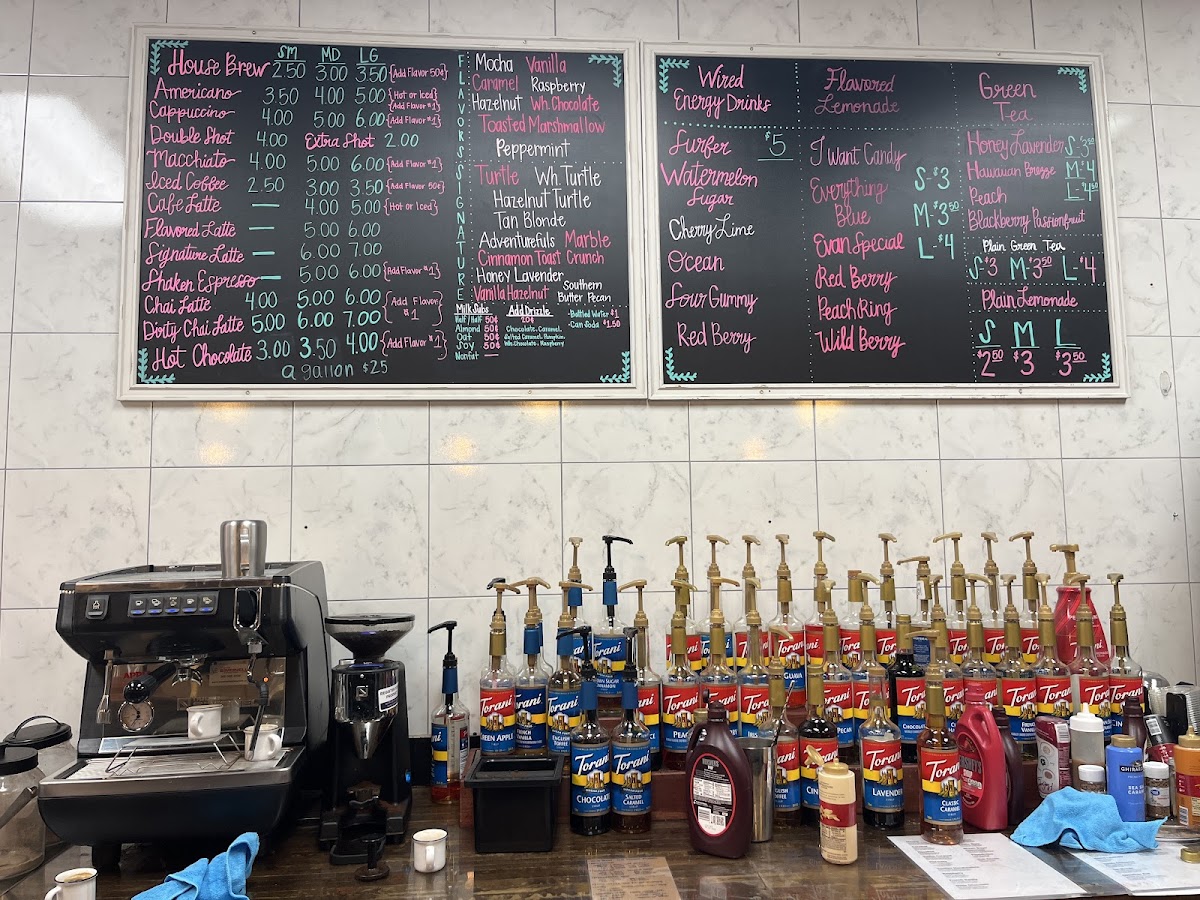 SM MD LG
House Brew 2.50 3.00 3.50 {Add Flavor 50¢}
Americano 3.50 4.00 5.00 {Hot or Iced} {Add Flavor $1}
Cappuccino 4.00 5.00 6.00 {Add Flavor $1}
Double Shot 4.00 Extra Shot 2.00
Macchiato 4.00 5.00 6.00 {Add Flavor $1}
Iced Coffee 2.50 3.00 3.50 {Add Flavor 50¢}
Cafe Latte — 4.00 5.00 {Hot or Iced}
Flavored Latte — 5.00 6.00
Signature Latte — 6.00 7.00
Shaken Espresso — 5.00 6.00 {Add Flavor $1}
Chai Latte 4.00 5.00 6.00 {Add Flavor $1}
Dirty Chai Latte 5.00 6.00 7.00
Hot Chocolate 3.00 3.50 4.00 {Add Flavor $1}
a gallon $25
FLAVORS
Mocha Vanilla
Caramel Raspberry
Hazelnut Wh. Chocolate
Toasted Marshmallow
Peppermint
SIGNATURE
Turtle Wh. Turtle
Hazelnut Turtle
Tan Blonde
Adventurefuls Marble
Cinnamon Toast Crunch
Honey Lavender
Vanilla Hazelnut
Southern
Butter Pecan
Milk Subs
Half/Half 50¢
Almond 50¢
Oat 50¢
Soy 50¢
Nonfat —
Add Drizzle
70¢
Chocolate, Caramel,
Salted Caramel, Pumpkin,
Wh. Chocolate, Raspberry
-Bottled Water $1
-Can Soda $1.50
Wired
Energy Drinks
Surfer $5
Watermelon
Sugar
Cherry Lime
Ocean
Sour Gummy
Red Berry
Flavored
Lemonade
I Want Candy
Everything
Blue
Evan Special
Red Berry
Peach Ring
Wild Berry
S-$3
M-$3.50
L-$4
Green
Tea
Honey Lavender
Hawaiian Breeze
Peach
Blackberry Passionfruit
S-3.50
M-$4
L-4.50
Plain Green Tea
S-$3 M-$3.50 L-$4
Plain Lemonade
S M L
$2.50 $3 $3.50
Torani
GREEN APPLE
Torani
FRENCH
VANILLA
Torani
ENGLISH
TOFFEE
Torani
CHOCOLATE
Torani
SALTED
CARAMEL
Torani
BROWN SUGAR
CINNAMON
Torani
PEACH
GUAVA
Torani
PECAN
Torani
CHOCOLATE
Torani
LAVENDER
Torani
CLASSIC
CARAMEL
GHIRARDELLI